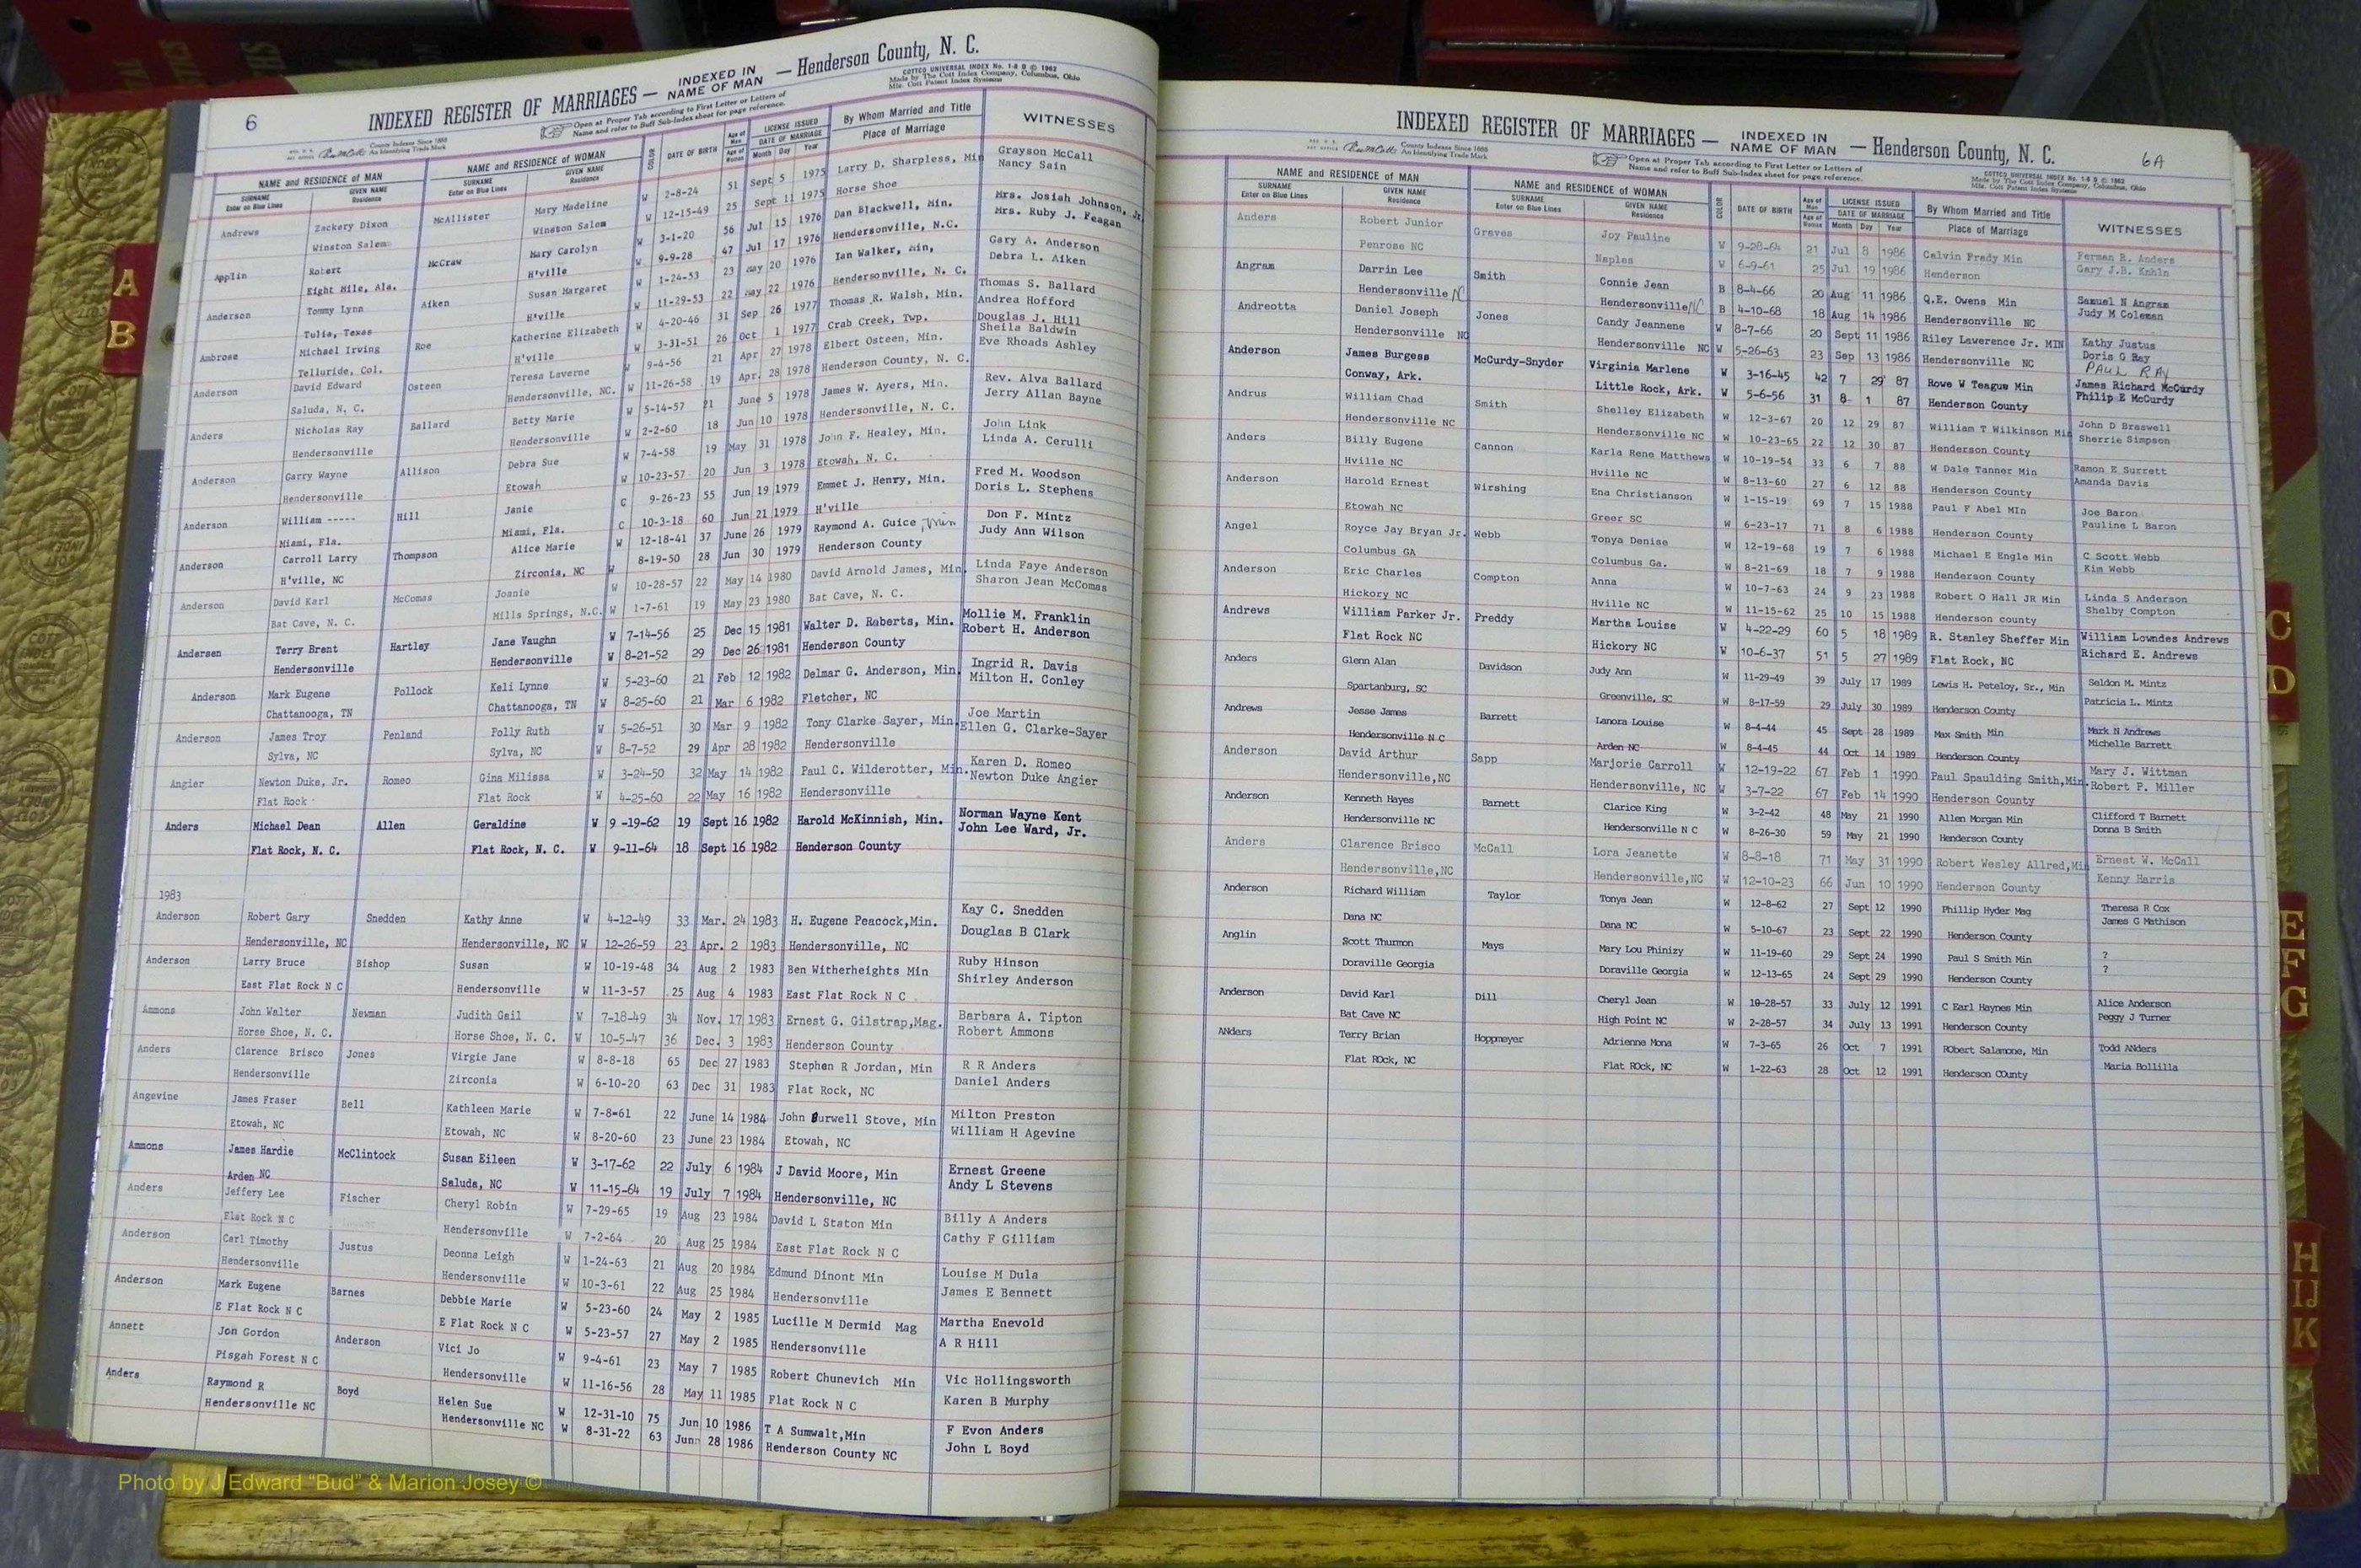 6
INDEXED REGISTER OF MARRIAGES — INDEXED IN NAME OF MAN — Henderson County, N. C.
COTTCO UNIVERSAL INDEX No. 1-8 D © 1962
Made by The Cott Index Company, Columbus, Ohio
Open at Proper Tab according to First Letter or Letters of
Name and refer to Buff Sub-Index sheet for page reference.
County Indexes Since 1888
An Identifying Trade Mark
NAME and RESIDENCE OF MAN NAME and RESIDENCE OF WOMAN COLOR DATE OF BIRTH Age of Man LICENSE ISSUED By Whom Married and Title WITNESSES
SURNAME Enter on Blue Lines GIVEN NAME Residence SURNAME Enter on Blue Lines GIVEN NAME Residence Age of Woman DATE OF MARRIAGE Month Day Year Place of Marriage
Andrews Zackery Dixon McAllister Mary Madeline W 2-8-24 51 Sept 5 1975 Larry D. Sharpless, Min Grayson McCall
Winston Salem Winston Salem W 12-15-49 25 Sept 11 1975 Horse Shoe Nancy Sain
Applin Robert McCraw Mary Carolyn W 3-1-20 56 Jul 15 1976 Dan Blackwell, Min. Mrs. Josiah Johnson, Jr.
Eight Mile, Ala. H'ville W 9-9-28 47 Jul 17 1976 Hendersonville, N.C. Mrs. Ruby J. Feagan
Anderson Tommy Lynn Aiken Susan Margaret W 1-24-53 23 May 20 1976 Ian Walker, Min, Gary A. Anderson
Tulia, Texas H'ville W 11-29-53 22 May 22 1976 Hendersonville, N. C. Debra L. Aiken
Ambrose Michael Irving Roe Katherine Elizabeth W 4-20-46 31 Sep 26 1977 Thomas R. Walsh, Min. Thomas S. Ballard
Andrea Hofford
Telluride, Col. H'ville W 3-31-51 26 Oct 1 1977 Crab Creek, Twp. Douglas J. Hill
Sheila Baldwin
Anderson David Edward Osteen Teresa Laverne W 9-4-56 21 Apr 27 1978 Elbert Osteen, Min. Eve Rhoads Ashley
Saluda, N. C. Hendersonville, NC. W 11-26-58 19 Apr. 28 1978 Henderson County, N. C.
Anders Nicholas Ray Ballard Betty Marie W 5-14-57 21 June 5 1978 James W. Ayers, Min. Rev. Alva Ballard
Hendersonville Hendersonville W 2-2-60 18 Jun 10 1978 Hendersonville, N. C. Jerry Allan Bayne
Anderson Garry Wayne Allison Debra Sue W 7-4-58 19 May 31 1978 John F. Healey, Min. John Link
Hendersonville Etowah W 10-23-57 20 Jun 3 1978 Etowah, N. C. Linda A. Cerulli
Anderson William ----- Hill Janie C 9-26-23 55 Jun 19 1979 Emmet J. Henry, Min. Fred M. Woodson
Miami, Fla. Miami, Fla. C 10-3-18 60 Jun 21 1979 H'ville Doris L. Stephens
Anderson Carroll Larry Thompson Alice Marie W 12-18-41 37 June 26 1979 Raymond A. Guice, Min Don F. Mintz
H'ville, NC Zirconia, NC W 8-19-50 28 Jun 30 1979 Henderson County Judy Ann Wilson
Anderson David Karl McComas Joanie W 10-28-57 22 May 14 1980 David Arnold James, Min. Linda Faye Anderson
Bat Cave, N. C. Mills Springs, N.C. W 1-7-61 19 May 23 1980 Bat Cave, N. C. Sharon Jean McComas
Andersen Terry Brent Hartley Jane Vaughn W 7-14-56 25 Dec 15 1981 Walter D. Roberts, Min. Mollie M. Franklin
Hendersonville Hendersonville W 8-21-52 29 Dec 26 1981 Henderson County Robert H. Anderson
Anderson Mark Eugene Pollock Keli Lynne W 5-23-60 21 Feb 12 1982 Delmar G. Anderson, Min. Ingrid R. Davis
Chattanooga, TN Chattanooga, TN W 8-25-60 21 Mar 6 1982 Fletcher, NC Milton H. Conley
Anderson James Troy Penland Polly Ruth W 5-26-51 30 Mar 9 1982 Tony Clarke Sayer, Min. Joe Martin
Sylva, NC Sylva, NC W 8-7-52 29 Apr 28 1982 Hendersonville Ellen G. Clarke-Sayer
Angier Newton Duke, Jr. Romeo Gina Milissa W 3-24-50 32 May 14 1982 Paul C. Wilderotter, Min. Karen D. Romeo
Flat Rock Flat Rock W 4-25-60 22 May 16 1982 Hendersonville Newton Duke Angier
Anders Michael Dean Allen Geraldine W 9-19-62 19 Sept 16 1982 Harold McKinnish, Min. Norman Wayne Kent
Flat Rock, N. C. Flat Rock, N. C. W 9-11-64 18 Sept 16 1982 Henderson County John Lee Ward, Jr.
1983
Anderson Robert Gary Snedden Kathy Anne W 4-12-49 33 Mar. 24 1983 H. Eugene Peacock,Min. Kay C. Snedden
Hendersonville, NC Hendersonville, NC W 12-26-59 23 Apr. 2 1983 Hendersonville, NC Douglas B Clark
Anderson Larry Bruce Bishop Susan W 10-19-48 34 Aug 2 1983 Ben Witherheights Min Ruby Hinson
East Flat Rock N C Hendersonville W 11-3-57 25 Aug 4 1983 East Flat Rock N C Shirley Anderson
Ammons John Walter Newman Judith Gail W 7-18-49 34 Nov. 17 1983 Ernest G. Gilstrap,Mag. Barbara A. Tipton
Horse Shoe, N. C. Horse Shoe, N. C. W 10-5-47 36 Dec. 3 1983 Henderson County Robert Ammons
Anders Clarence Brisco Jones Virgie Jane W 8-8-18 65 Dec 27 1983 Stephen R Jordan, Min R R Anders
Hendersonville Zirconia W 6-10-20 63 Dec 31 1983 Flat Rock, NC Daniel Anders
Angevine James Fraser Bell Kathleen Marie W 7-8-61 22 June 14 1984 John Burwell Stove, Min Milton Preston
Etowah, NC Etowah, NC W 8-20-60 23 June 23 1984 Etowah, NC William H Agevine
Ammons James Hardie McClintock Susan Eileen W 3-17-62 22 July 6 1984 J David Moore, Min Ernest Greene
Arden NC Saluda, NC W 11-15-64 19 July 7 1984 Hendersonville, NC Andy L Stevens
Anders Jeffery Lee Fischer Cheryl Robin W 7-29-65 19 Aug 23 1984 David L Staton Min Billy A Anders
Flat Rock N C Hendersonville W 7-2-64 20 Aug 25 1984 East Flat Rock N C Cathy F Gilliam
Anderson Carl Timothy Justus Deonna Leigh W 1-24-63 21 Aug 20 1984 Edmund Dinont Min Louise M Dula
Hendersonville Hendersonville W 10-3-61 22 Aug 25 1984 Hendersonville James E Bennett
Anderson Mark Eugene Barnes Debbie Marie W 5-23-60 24 May 2 1985 Lucille M Dermid Mag Martha Enevold
E Flat Rock N C E Flat Rock N C W 5-23-57 27 May 2 1985 Hendersonville A R Hill
Annett Jon Gordon Anderson Vici Jo W 9-4-61 23 May 7 1985 Robert Chunevich Min Vic Hollingsworth
Pisgah Forest N C Hendersonville W 11-16-56 28 May 11 1985 Flat Rock N C Karen B Murphy
Anders Raymond R Boyd Helen Sue W 12-31-10 75 Jun 10 1986 T A Sumwalt,Min F Evon Anders
Hendersonville NC Hendersonville NC W 8-31-22 63 Jun 28 1986 Henderson County NC John L Boyd
INDEXED REGISTER OF MARRIAGES — INDEXED IN NAME OF MAN — Henderson County, N. C.
6A
COTTCO UNIVERSAL INDEX No. 1-8 D © 1962
Made by The Cott Index Company, Columbus, Ohio
Open at Proper Tab according to First Letter or Letters of
Name and refer to Buff Sub-Index sheet for page reference.
County Indexes Since 1888
An Identifying Trade Mark
NAME and RESIDENCE OF MAN NAME and RESIDENCE OF WOMAN COLOR DATE OF BIRTH Age of Man LICENSE ISSUED By Whom Married and Title WITNESSES
SURNAME Enter on Blue Lines GIVEN NAME Residence SURNAME Enter on Blue Lines GIVEN NAME Residence Age of Woman DATE OF MARRIAGE Month Day Year Place of Marriage
Anders Robert Junior Graves Joy Pauline W 9-28-64 21 Jul 8 1986 Calvin Frady Min Ferman R. Anders
Penrose NC Naples W 6-9-61 25 Jul 19 1986 Henderson Gary J.B. Knhln
Angram Darrin Lee Smith Connie Jean B 8-4-66 20 Aug 11 1986 Q.E. Owens Min Samuel N Angram
Hendersonville NC Hendersonville NC B 4-10-68 18 Aug 14 1986 Hendersonville NC Judy M Coleman
Andreotta Daniel Joseph Jones Candy Jeannene W 8-7-66 20 Sept 11 1986 Riley Lawerence Jr. MIN Kathy Justus
Hendersonville NC Hendersonville NC W 5-26-63 23 Sep 13 1986 Hendersonville NC Doris G Ray
PAUL RAY
Anderson James Burgess McCurdy-Snyder Virginia Marlene W 3-16-45 42 7 29 87 Rowe W Teague Min James Richard McCurdy
Conway, Ark. Little Rock, Ark. W 5-6-56 31 8 1 87 Henderson County Philip E McCurdy
Andrus William Chad Smith Shelley Elizabeth W 12-3-67 20 12 29 87 William T Wilkinson Min John D Braswell
Hendersonville NC Hendersonville NC W 10-23-65 22 12 30 87 Henderson County Sherrie Simpson
Anders Billy Eugene Cannon Karla Rene Matthews W 10-19-54 33 6 7 88 W Dale Tanner Min Ramon E Surrett
Hville NC Hville NC W 8-13-60 27 6 12 88 Henderson County Amanda Davis
Anderson Harold Ernest Wirshing Ena Christianson W 1-15-19 69 7 15 1988 Paul F Abel MIn Joe Baron
Etowah NC Greer SC W 6-23-17 71 8 6 1988 Henderson County Pauline L Baron
Angel Royce Jay Bryan Jr. Webb Tonya Denise W 12-19-68 19 7 6 1988 Michael E Engle Min C Scott Webb
Columbus GA Columbus Ga. W 8-21-69 18 7 9 1988 Henderson County Kim Webb
Anderson Eric Charles Compton Anna W 10-7-63 24 9 23 1988 Robert O Hall JR Min Linda S Anderson
Hickory NC Hville NC W 11-15-62 25 10 15 1988 Henderson county Shelby Compton
Andrews William Parker Jr. Preddy Martha Louise W 4-22-29 60 5 18 1989 R. Stanley Sheffer Min William Lowndes Andrews
Flat Rock NC Hickory NC W 10-6-37 51 5 27 1989 Flat Rock, NC Richard E. Andrews
Anders Glenn Alan Davidson Judy Ann W 11-29-49 39 July 17 1989 Lewis H. Peteloy, Sr., Min Seldon M. Mintz
Spartanburg, SC Greenville, SC W 8-17-59 29 July 30 1989 Henderson County Patricia L. Mintz
Andrews Jesse James Barrett Lanora Louise W 8-4-44 45 Sept 28 1989 Max Smith Min Mark N Andrews
Hendersonville N C Arden NC W 8-4-45 44 Oct 14 1989 Henderson County Michelle Barrett
Anderson David Arthur Sapp Marjorie Carroll W 12-19-22 67 Feb 1 1990 Paul Spaulding Smith,Min. Mary J. Wittman
Hendersonville,NC Hendersonville, NC W 3-7-22 67 Feb 14 1990 Henderson County Robert P. Miller
Anderson Kenneth Hayes Barnett Clarice King W 3-2-42 48 May 21 1990 Allen Morgan Min Clifford T Barnett
Hendersonville NC Hendersonville N C W 8-26-30 59 May 21 1990 Henderson County Donna B Smith
Anders Clarence Brisco McCall Lora Jeanette W 8-8-18 71 May 31 1990 Robert Wesley Allred,Min Ernest W. McCall
Hendersonville,NC Hendersonville,NC W 12-10-23 66 Jun 10 1990 Henderson County Kenny Harris
Anderson Richard William Taylor Tonya Jean W 12-8-62 27 Sept 12 1990 Phillip Hyder Mag Theresa R Cox
Dana NC Dana NC W 5-10-67 23 Sept 22 1990 Henderson County James G Mathison
Anglin Scott Thurmon Mays Mary Lou Phinizy W 11-19-60 29 Sept 24 1990 Paul S Smith Min ?
Doraville Georgia Doraville Georgia W 12-13-65 24 Sept 29 1990 Henderson County ?
Anderson David Karl Dill Cheryl Jean W 10-28-57 33 July 12 1991 C Earl Haynes Min Alice Anderson
Bat Cave NC High Point NC W 2-28-57 34 July 13 1991 Henderson County Peggy J Turner
ANders Terry Brian Hoppmeyer Adrienne Mona W 7-3-65 26 Oct 7 1991 RObert Salamone, Min Todd ANders
Flat ROck, NC Flat ROck, NC W 1-22-63 28 Oct 12 1991 Henderson COunty Maria Bollilla
A
B
C
D
E
F
G
H
IJ
K
Photo by J Edward “Bud” & Marion Josey ©